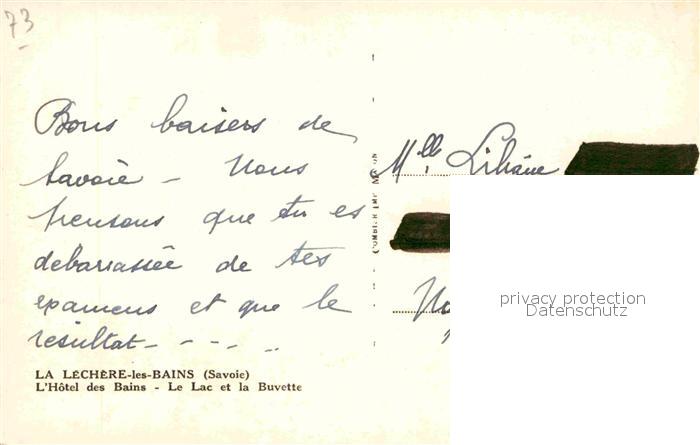 73
Bons baisers de
Savoie - Nous
pensons que tu es
débarrassée de tes
examens et que le
résultat - - - - ..
LA LÉCHÈRE-les-BAINS (Savoie)
L'Hôtel des Bains - Le Lac et la Buvette
COMBIER IMP. MACON
Mlle Liliane
privacy protection
Datenschutz